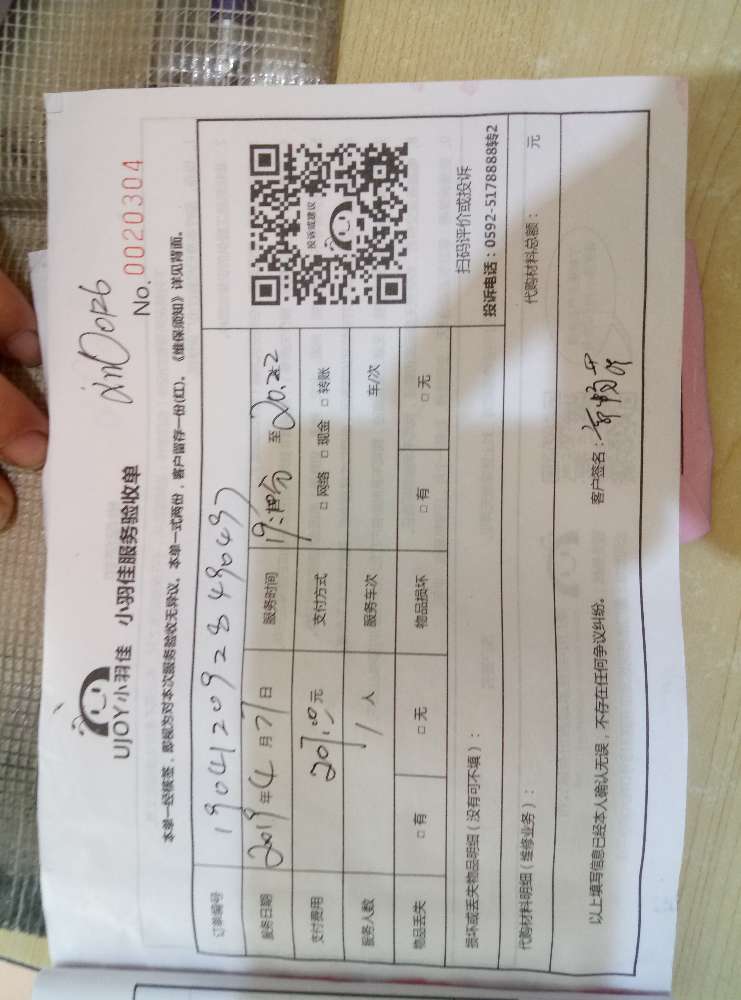 UJOY小羽佳 小羽佳服务验收单
No. 0020304
本单一经核签，即视为对本次服务验收无异议。本单一式两份，客户留存一份(红)。《维保须知》详见背面。
订单编号
服务日期 2019 年 4 月 日 服务时间 至
支付费用 元 支付方式 □ 网络 □ 现金 □ 转账
服务人数 1 人 服务车次 车/次
物品丢失 □ 有 □ 无 物品损坏 □ 有 □ 无
投诉或建议
扫码评价或投诉
投诉电话：0592-5178888转2
损坏或丢失物品明细（没有可不填）：
代购材料明细（维修业务）： 代购材料总额： 元
以上填写信息已经本人确认无误，不存在任何争议纠纷。 客户签名：